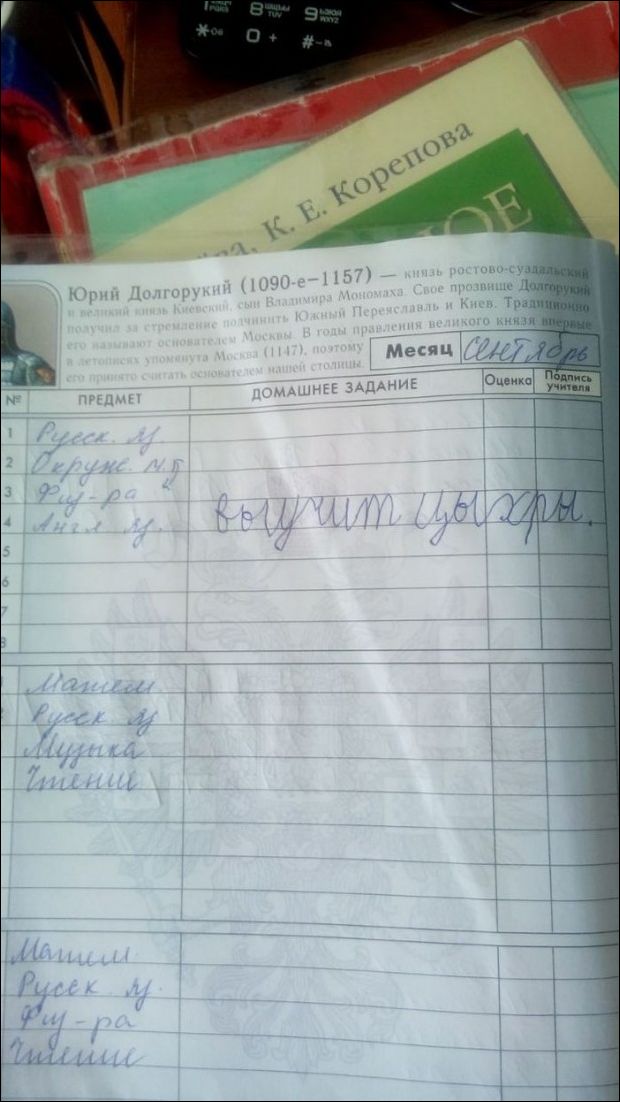 8
9
*
0 +
#
ва, К. Е. Корепова
НОЕ
Юрий Долгорукий (1090-е–1157) — князь ростово-суздальский
и великий князь Киевский, сын Владимира Мономаха. Свое прозвище Долгорукий
получил за стремление подчинить Южный Переяславль и Киев. Традиционно
его называют основателем Москвы. В годы правления великого князя впервые
в летописях упомянута Москва (1147), поэтому
его принято считать основателем нашей столицы.
Месяц Сентябрь
№ ПРЕДМЕТ ДОМАШНЕЕ ЗАДАНИЕ Оценка Подпись учителя
1 Русск. яз.
2 Окруж. м.
3 Физ-ра
4 Англ яз. выучит цыхры.
5
6
7
8
Матем
Русск яз
Музыка
Чтение
Матем.
Русск яз.
Физ-ра
Чтение